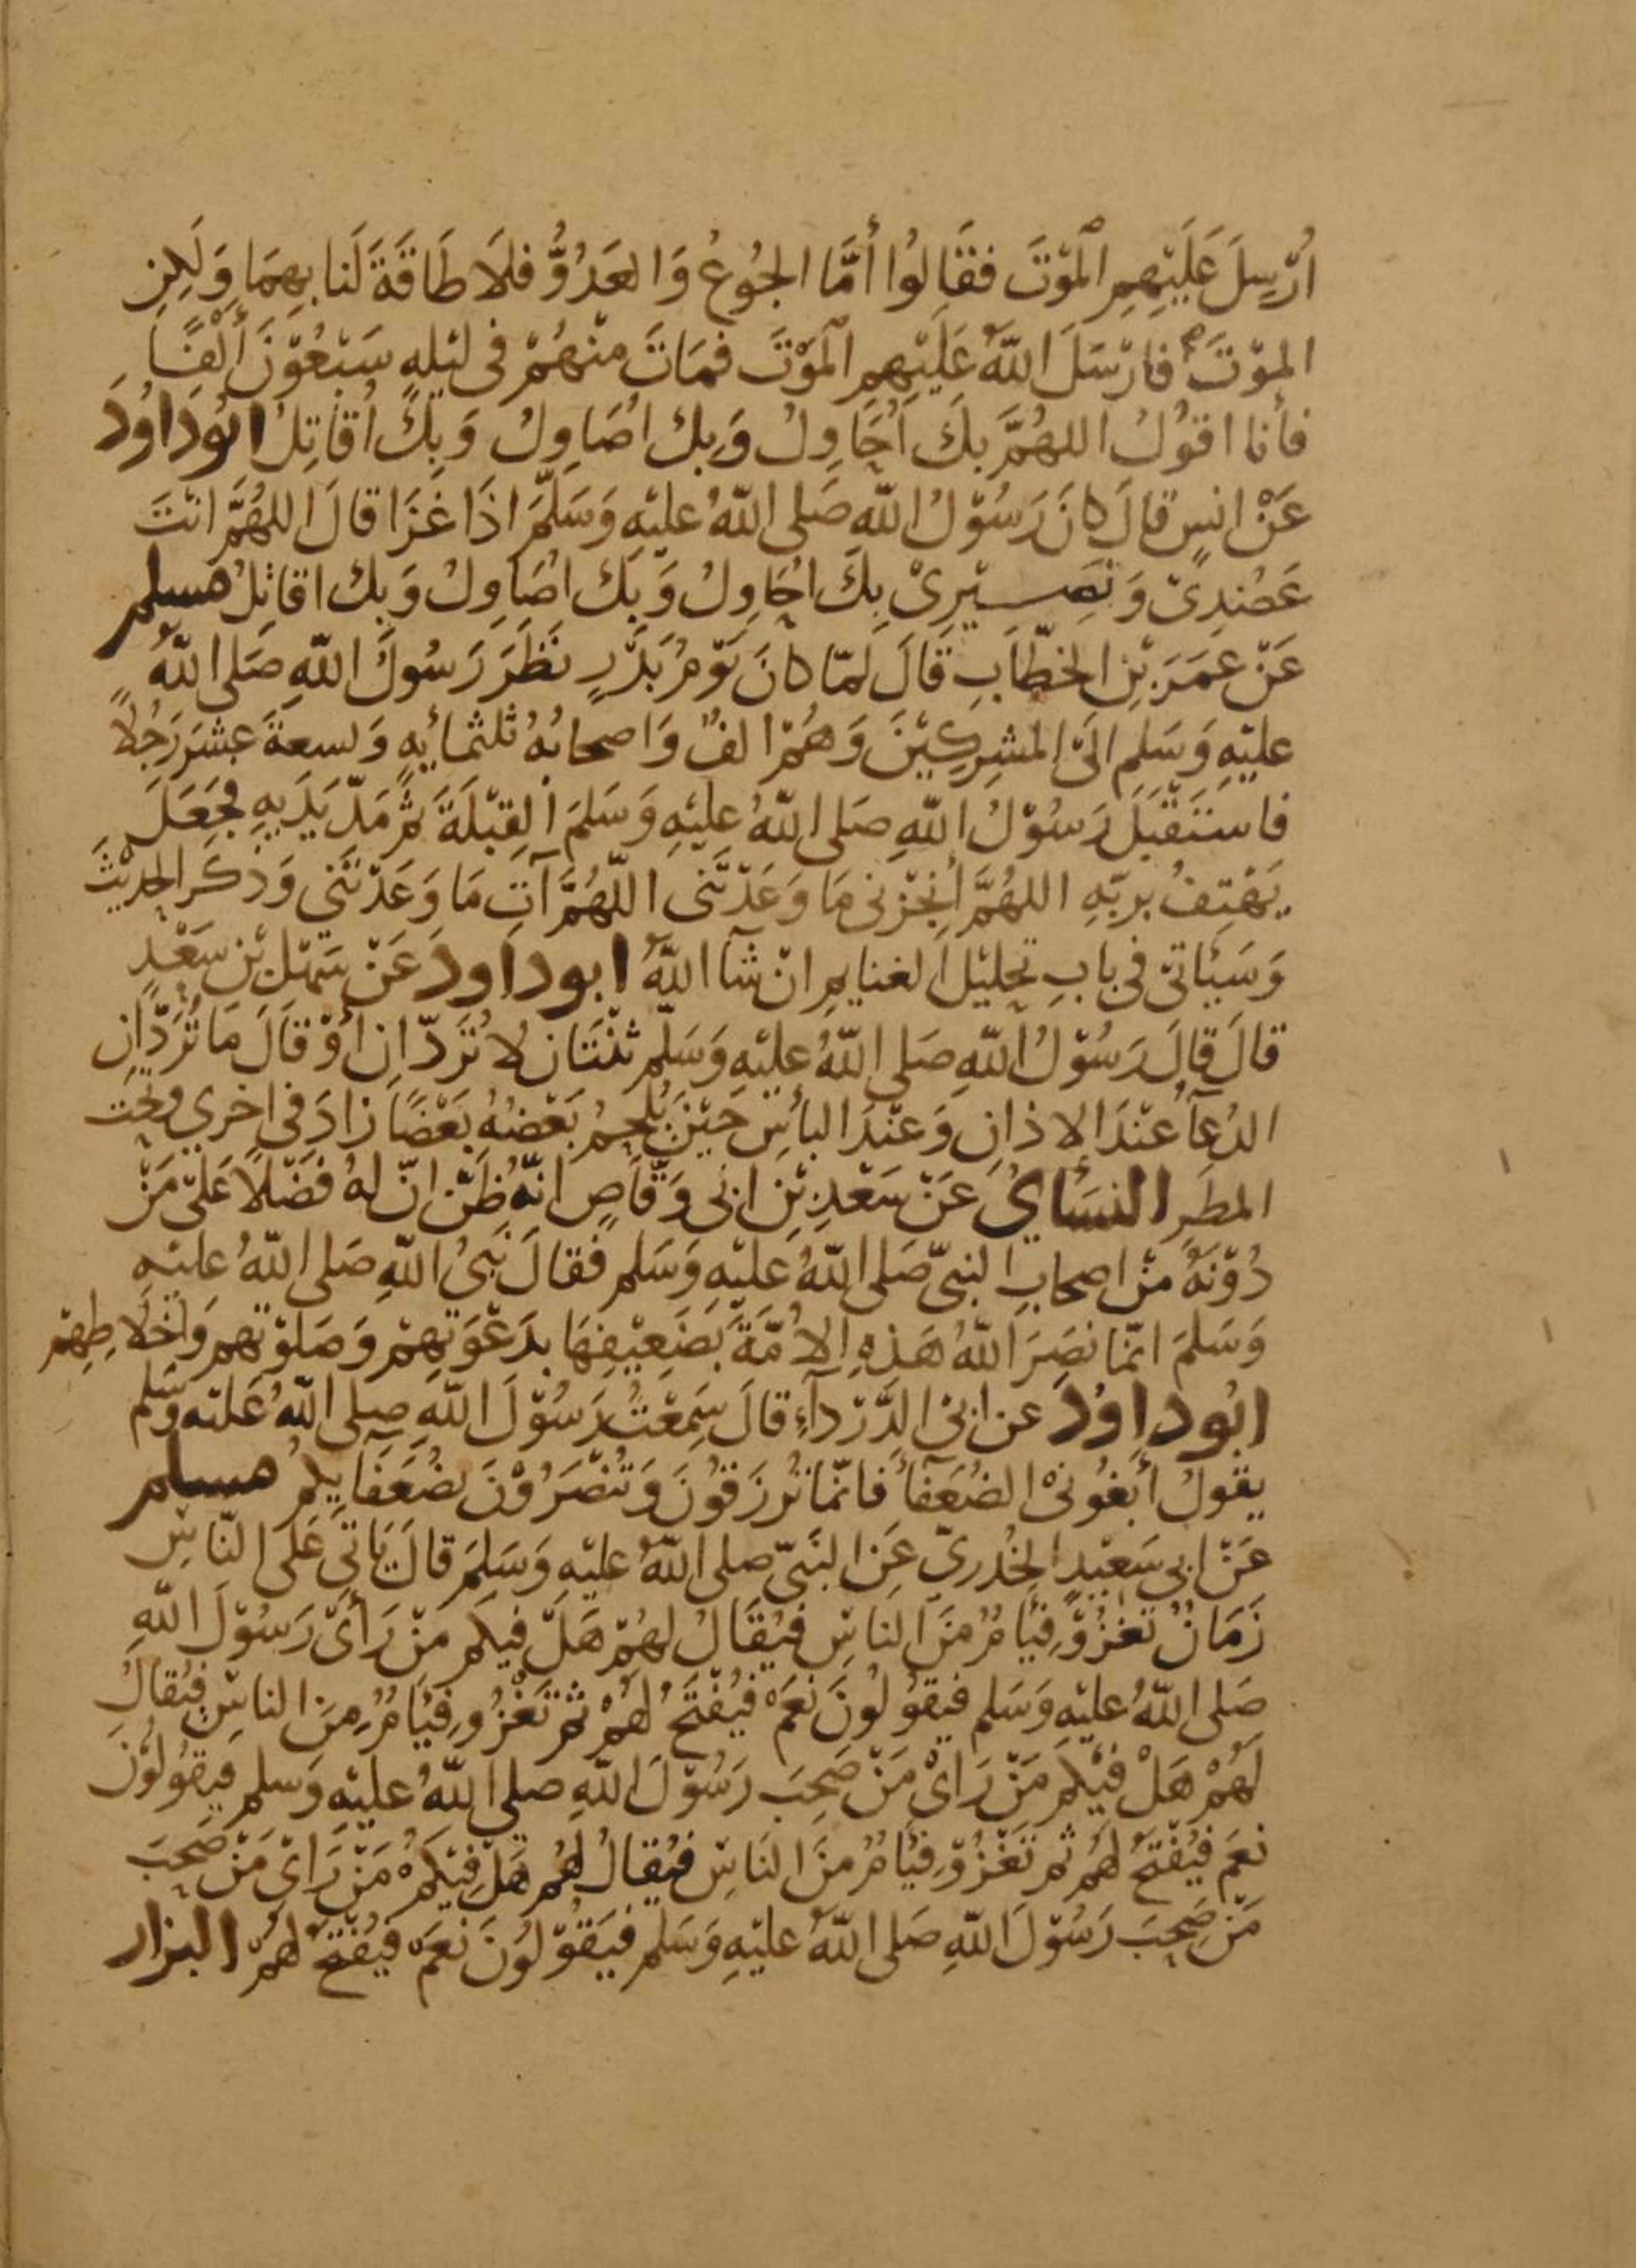 اُرْسِلَ عَلَيْهِمِ الْمَوْتَ فَقَالُوا أَمَّا الجُوعُ وَالعَدُوُّ فَلَا طَاقَةَ لَنا بِهِمَا وَلَكِنِ
المَوْتَ فَارْسَلَ اللّهُ عَلَيْهِمِ الْمَوْتَ فَمَاتَ مِنْهُمْ فى لَيْلهٍ سَبْعُوْنَ أَلْفًا
فأنا اقوُلُ اللهُمَّ بِكَ اُحَاوِلُ وَبِكَ اُصَاوِلُ وَبِكَ اُقَاتِلُ ابُودَاوُدَ
عَنْ انسٍ قالَ كانَ رَسُوْلُ اللّهِ صَلى اللّهُ عليْهِ وَسَلَّمَ اذَا غَزَا قالَ اللهُمَّ انْتَ
عَضُدِىْ وَنَصِيْرِىْ بِكَ اُحَاوِلُ وَبِكَ اُصَاوِلُ وَبِكَ اقاتِلُ مسلم
عَنْ عُمَرَ بْنِ الخطّابِ قَالَ لمّا كانَ يَوْمُ بَدْرٍ نَظَرَ رَسُولُ اللّهِ صَلى اللّهُ
عليْهِ وَسَلم الَى المشرِكِيْنَ وَهُمْ الفٌ وَاصحابُهُ ثلثمائةٍ وَتسعةَ عشَرَ رَجُلاً
فاسْتَقْبَلَ رَسُوْلُ اللّهِ صَلى اللّهُ عليْهِ وَسَلمَ القِبْلَةَ ثُمَّ مَدّ يَدَيهِ فجَعَلَ
يَهْتِفُ بربّهِ اللهُمَّ أنجزْنى مَا وَعَدْتَنى اللّهُمَّ آتِ مَا وَعَدْتَنى وَذكَرَ الحدِيْثَ
وَسَيَاتىْ فى بابِ تحليْل الغنايمِ انْ شآ اللّهُ ابوداود عَنْ سَهْلِ بْنِ سَعْدٍ
قالَ قالَ رَسُوْلُ اللّهِ صَلى اللّهُ عليْهِ وَسَلّم ثنْتَانِ لا تُرَدّانِ أوْ قَالَ مَا تُرَدَّانِ
الدُعآُ عنْدَ الاذانِ وَعنْدَ البأسِ حيْنَ يُلحمُ بَعْضُهُ بَعْضًا زادَ فى اخرى وتحت
المطَرِ النسَاىُ عَنْ سَعْدِ بْنِ ابى وَقّاصٍ انّهُ ظَنّ انّ لهُ فَضْلاً عَلىْ مَنْ
دُوْنَهُ مْن اصحابِ النبىّ صَلى اللّهُ عليْهِ وَسَلم فقالَ نَبىُ اللّهِ صَلى اللّهُ عليْهِ
وَسَلمَ انمّا نصَرَ اللّهُ هَذهِ الاُمّةَ بضَعِيْفِهَا بدَعْوَتِهِمْ وَصَلوٰتهِم وَاخلاصِهِمْ
ابُوداوُدَ عن ابى الدَّرْدآءِ قالَ سَمِعْتُ رَسُوْلَ اللّهِ صلى اللّهُ عَليْهِ وَسَلم
يقولُ أبغُونىْ الضُعَفآَ فانّمَا تُرزَقُونَ وَتُنْصَرُوْنَ بضُعَفَآيِكمْ مسلم
عَنْ ابى سَعيْدٍ الخُدرىّ عَن النَبىّ صلى اللّهُ عليْهِ وَسَلمَ قالَ يَاتى عَلى النّاسِ
زَمَانٌ تغزُوْ فئامٌ مْنَ الناسِ فيُقَالُ لهُمْ هَلْ فيكم مَنْ رَأىْ رَسُوْلَ اللّهِ
صَلى اللّهُ عليْهِ وَسَلم فيقولُونَ نعَمْ فيُفْتَحُ لهُمْ ثم تَغْزُو فئامٌ مِنَ الناسِ فيُقالُ
لَهُمْ هَلْ فيْكم مَنْ رَاىْ مَنْ صَحِبَ رَسُوْلَ اللّهِ صلى اللّهُ عليْهِ وَسلم فيقولُوْنَ
نعَم فيُفْتَحُ لهُم ثم تَغْزُوْ فئامٌ مْنَ النَاسِ فيُقالُ لهُم هَلْ فيْكمْ مَنْ رَاىْ مَنْ صَحِبَ
مَنْ صَحِبَ رَسُوْلَ اللّهِ صَلى اللّهُ عليْهِ وَسَلم فيَقُوْلُوْنَ نعَمْ فيُفْتَحُ لهمْ البزار